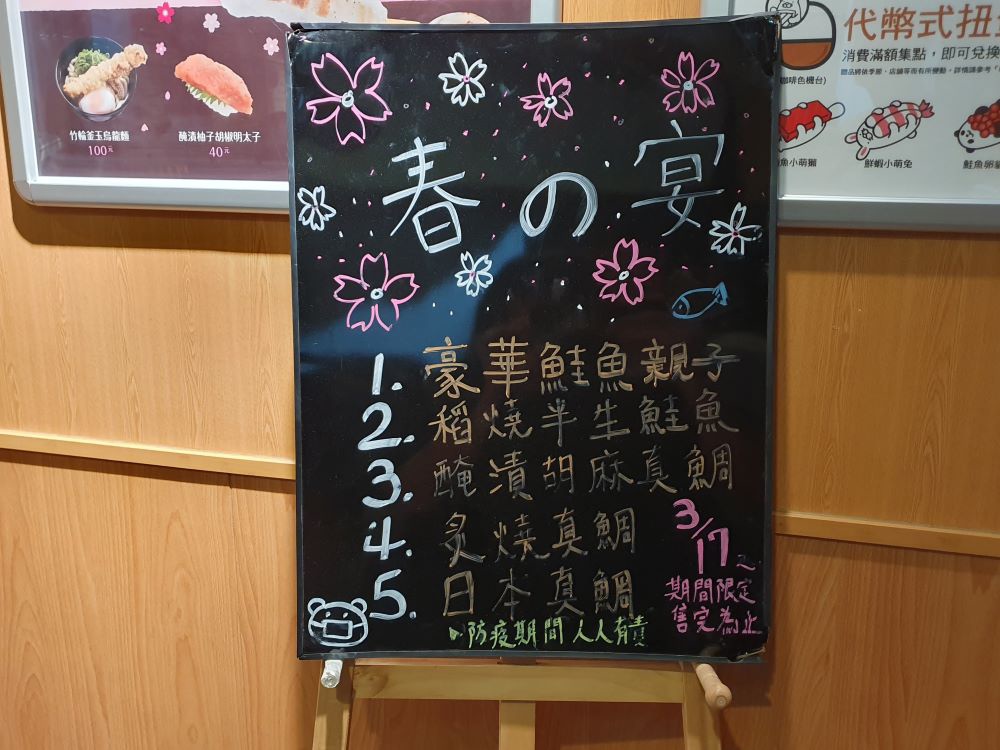 竹輪釜玉烏龍麵
100元
醃漬柚子胡椒明太子
40元
代幣式扭
消費滿額集點,即可兌換
咖啡色機台)
魚小萌獺
鮮蝦小萌兔
鮭魚卵
春の宴
1. 豪華鮭魚親子
2. 稻燒半生鮭魚
3. 醃漬胡麻真鯛
4. 炙燒真鯛
5. 日本真鯛
3/17~
期間限定
售完為止
防疫期間 人人有責